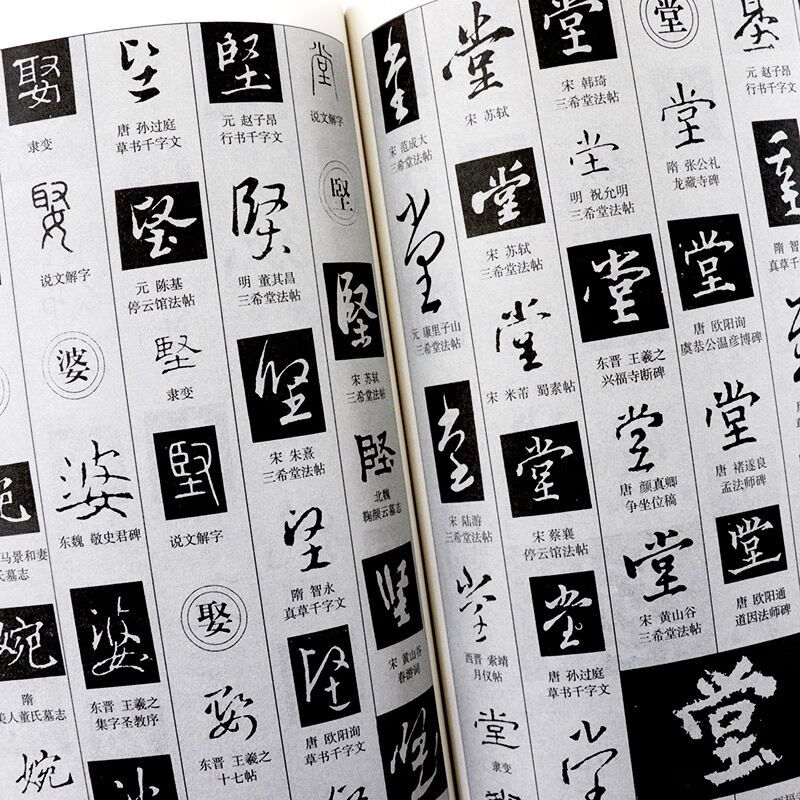 基
元 赵子昂
行书千字文
隋 智
真草千字文
堂
堂
隋 张公礼
龙藏寺碑
堂
唐 欧阳询
虞恭公温彦博碑
堂
唐 褚遂良
孟法师碑
堂
唐 欧阳通
道因法师碑
堂
堂
宋 韩琦
三希堂法帖
堂
明 祝允明
三希堂法帖
堂
东晋 王羲之
兴福寺断碑
堂
唐 颜真卿
争坐位稿
堂
宋 黄山谷
三希堂法帖
堂
宋 苏轼
堂
宋 苏轼
三希堂法帖
堂
宋 米芾 蜀素帖
堂
宋 蔡襄
停云馆法帖
堂
唐 孙过庭
草书千字文
堂
堂
宋 范成大
三希堂法帖
堂
元 康里子山
三希堂法帖
堂
宋 陆游
三希堂法帖
堂
西晋 索靖
月仪帖
堂
隶变
堂
说文解字
堅
堅
宋 苏轼
三希堂法帖
堅
北魏
鞠颜云墓志
堅
宋 黄山谷
春游词
堅
堅
元 赵子昂
行书千字文
堅
明 董其昌
三希堂法帖
堅
宋 朱熹
三希堂法帖
堅
隋 智永
真草千字文
堅
唐 欧阳询
草书千字文
堅
唐 孙过庭
草书千字文
堅
元 陈基
停云馆法帖
堅
隶变
堅
说文解字
娶
娶
东晋 王羲之
十七帖
娶
隶变
娶
说文解字
婆
婆
东魏 敬史君碑
婆
东晋 王羲之
集字圣教序
婆
婉
马景和妻
氏墓志
婉
隋
美人董氏墓志
婉